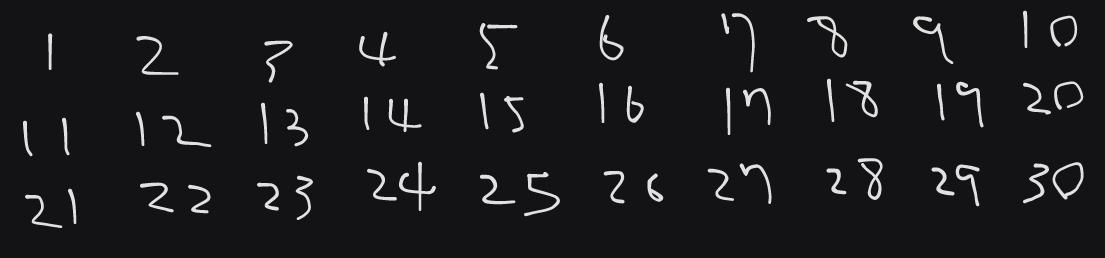 1 2 3 4 5 6 7 8 9 10
11 12 13 14 15 16 17 18 19 20
21 22 23 24 25 26 27 28 29 30